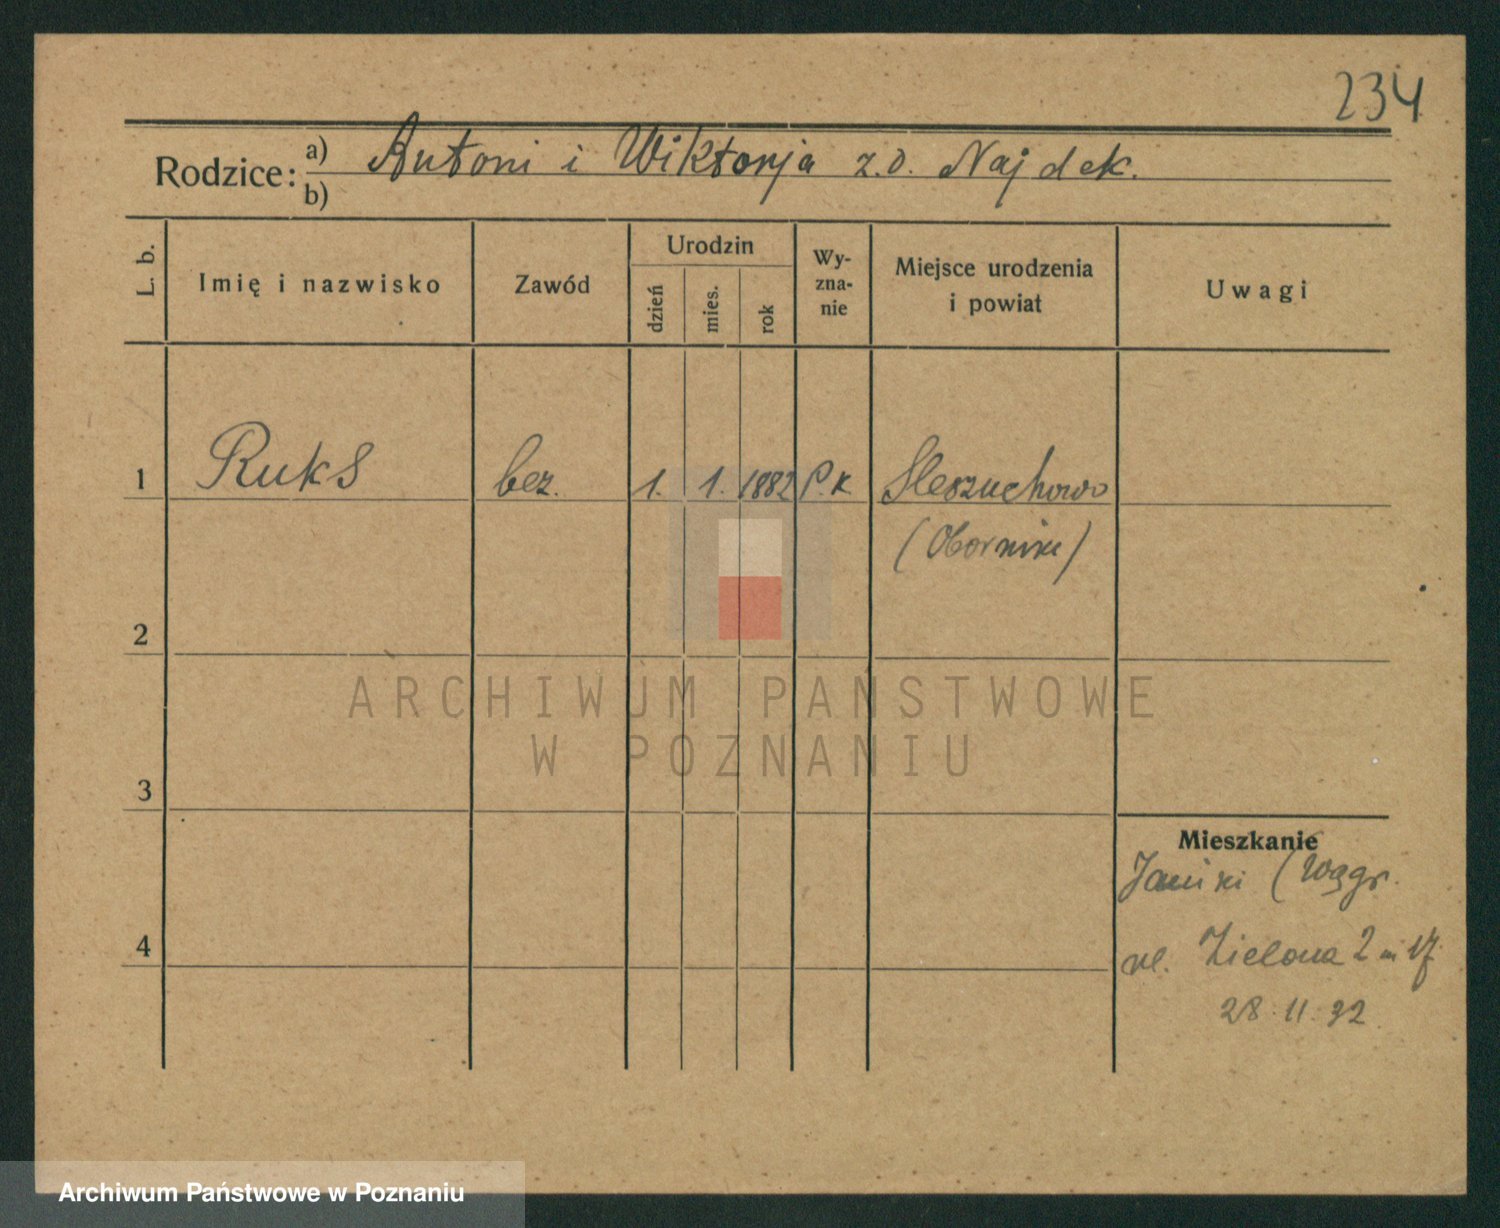 234
Rodzice: a) Antoni i Wiktorja z.d. Najdek.
b)
L. b.
Imię i nazwisko
Zawód
Urodzin
dzień
mies.
rok
Wy-
zna-
nie
Miejsce urodzenia
i powiat
Uwagi
1 Ruks bez. 1. 1. 1882 P.K
(Oborniki)
2
3
4
Mieszkanie
(Wągr.
ul. Zielona 2 m 17
28.11.32
ARCHIWUM PAŃSTWOWE
W POZNANIU
Archiwum Państwowe w Poznaniu